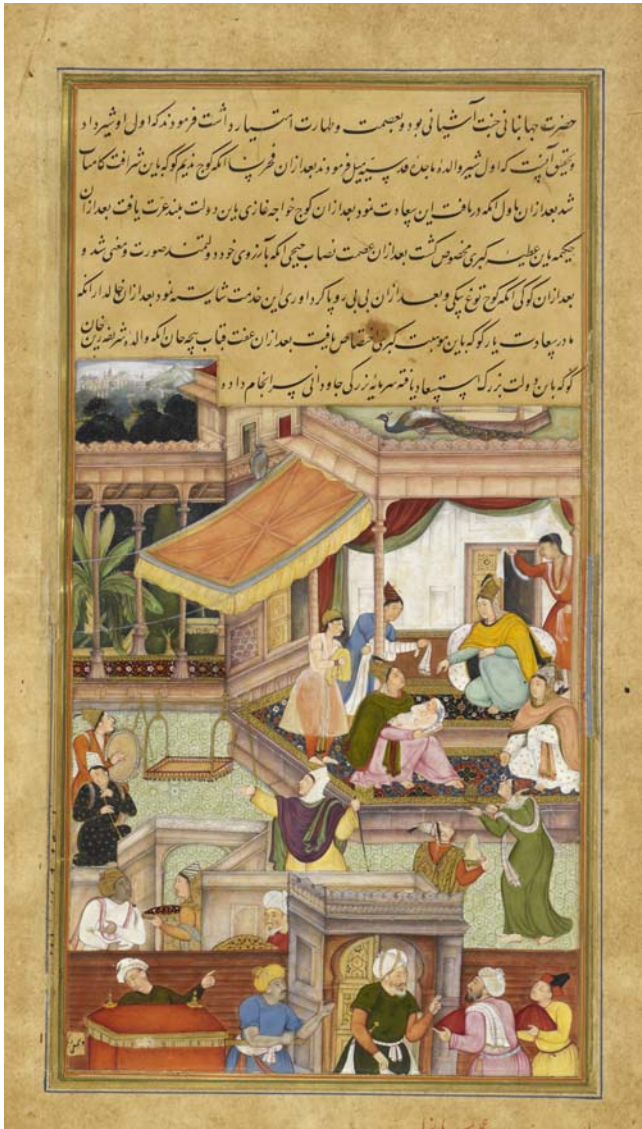 حضرت جهانبانی جنت آشیانی بود و بعصمت و طهارت امتیاز داشت فرمودند که اول او شیر داد
و تحقیق آنست که اول شیر والدهٔ ماجدهٔ قدسیه میل فرمودند بعد ازان فخر نسا انکه کوچ ندیم کوکه باین شرافت کامیاب
شد بعد ازان بهاول انکه دریافت این سعادت نمود بعد ازان کوچ خواجه غازی باین دولت بلند عزت یافت بعد ازان
حکیمه باین عطیه کبری مخصوص گشت بعد ازان عصمت نصاب جیجی انکه بآرزوی خود دولتمند صورت و معنی شد و
بعد ازان کوکی انکه کوچ توغ بیکی و بعد ازان بی بی روپا گرد آوری این خدمت شایسته نمود بعد ازان خالدار انکه
مادر سعادت یار کوکه باین موهبت کبری اختصاص یافت بعد ازان عفت قباب پیجه جان انکه والدهٔ شریفه زین خان
کوکه باین دولت بزرگ استسعاد یافته سرمایه بزرگی جاودانی سرانجام داده